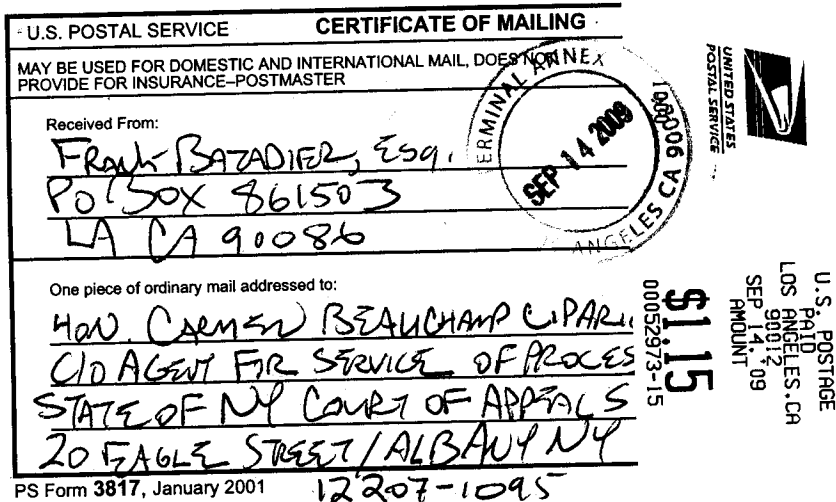 U.S. POSTAL SERVICE CERTIFICATE OF MAILING
MAY BE USED FOR DOMESTIC AND INTERNATIONAL MAIL, DOES NOT
PROVIDE FOR INSURANCE–POSTMASTER
Received From:
FRANK BAZADIER, Esq.
PO BOX 861503
LA CA 90086
One piece of ordinary mail addressed to:
HON. CARMEN BEAUCHAMP CIPARI
C/O AGENT FOR SERVICE OF PROCES
STATE OF NY COURT OF APPEALS
20 EAGLE STREET / ALBANY NY
12207-1095
PS Form 3817, January 2001
ERMINAL ANNEX
SEP 14 2009
ANGELES CA
UNITED STATES
POSTAL SERVICE
U.S. POSTAGE
PAID
LOS ANGELES, CA
90012
SEP 14, 09
AMOUNT
$1.15
00052973-15